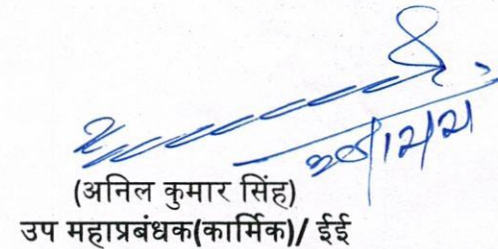 (अनिल कुमार सिंह)
उप महाप्रबंधक(कार्मिक)/ ईई